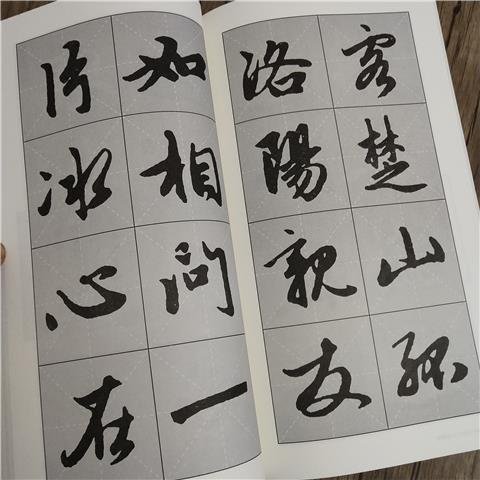 客楚山孤
洛陽親友
如相問一
片冰心在